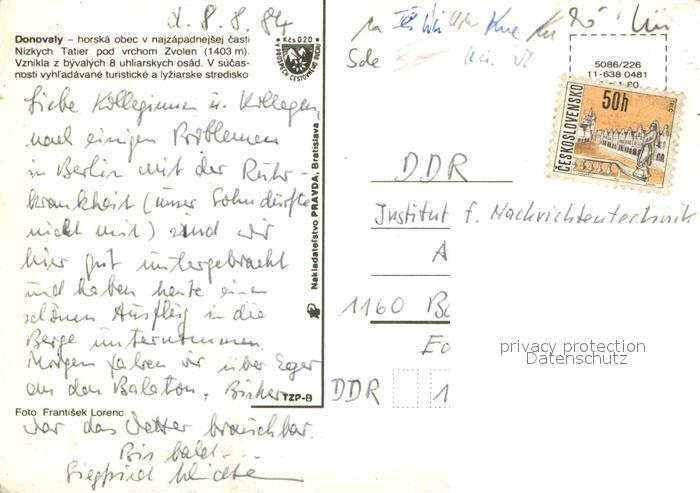 d. 8.8.84
Donovaly – horská obec v najzápadnejšej časti
Nízkych Tatier pod vrchom Zvolen (1403 m).
Vznikla z bývalých 8 uhliarskych osád. V súčas-
nosti vyhľadávané turistické a lyžiarske stredisko
Kčs 0,20
Liebe Kolleginnen u. Kollegen,
nach einigen Problemen
in Berlin mit der Ruhr-
krankheit (unser Sohn durfte
nicht mit) sind wir
hier gut untergebracht
und haben heute einen
schönen Ausflug in die
Berge unternommen.
Morgen fahren wir über Eger
an den Balaton. Bisher
war das Wetter brauchbar.
Bis bald...
Siegfried
Foto František Lorenc
TZP-B
Nakladateľstvo PRAVDA, Bratislava
5086/226
11-638 0481
ČESKOSLOVENSKO
50h
DDR
Institut f. Nachrichtentechnik
A
1160 B
DDR 1
privacy protection
Datenschutz